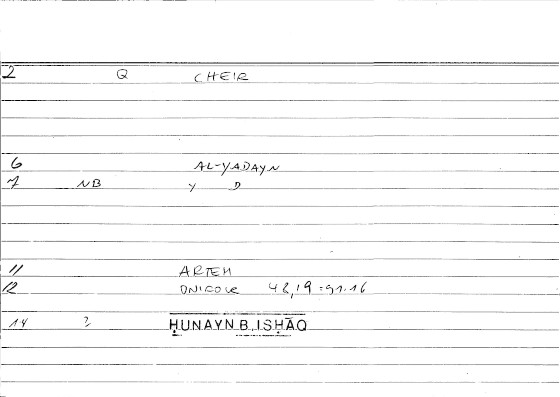 2 Q CHEIR
6 AL-YADAYN
7 NB Y D
11 ARTEM
12 48,19 = 91.16
14 ? ḤUNAYN B. ISḤĀQ